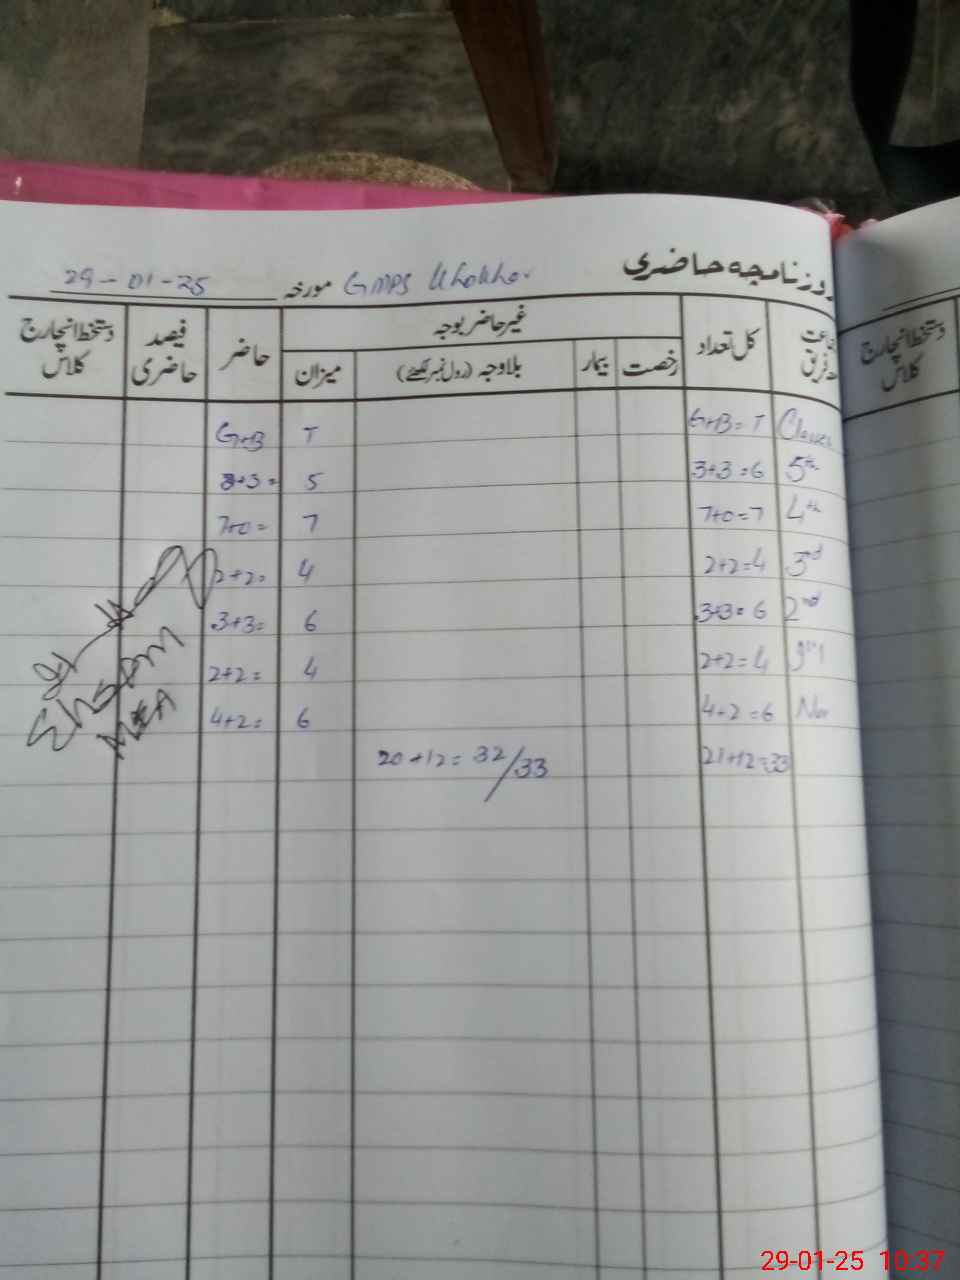 روزنامچہ حاضری GMPS Khokhar مورخہ 29-01-25
جماعت فریق کل تعداد غیر حاضر بوجہ حاضر فیصد حاضری دستخط انچارج کلاس
رخصت بیمار بلاوجہ (رول نمبر لکھئے) میزان
دستخط انچارج کلاس
Classes G+B=T T G+B
5th 3+3=6 5 3+3=
4th 7+0=7 7 7+0=
3rd 2+2=4 4 2+2=
2nd 3+3=6 6 3+3=
2+2=4 4 2+2=
Nur 4+2=6 6 4+2=
21+12=33 20+12=32/33
Ehsan
MEA
29-01-25 10:37